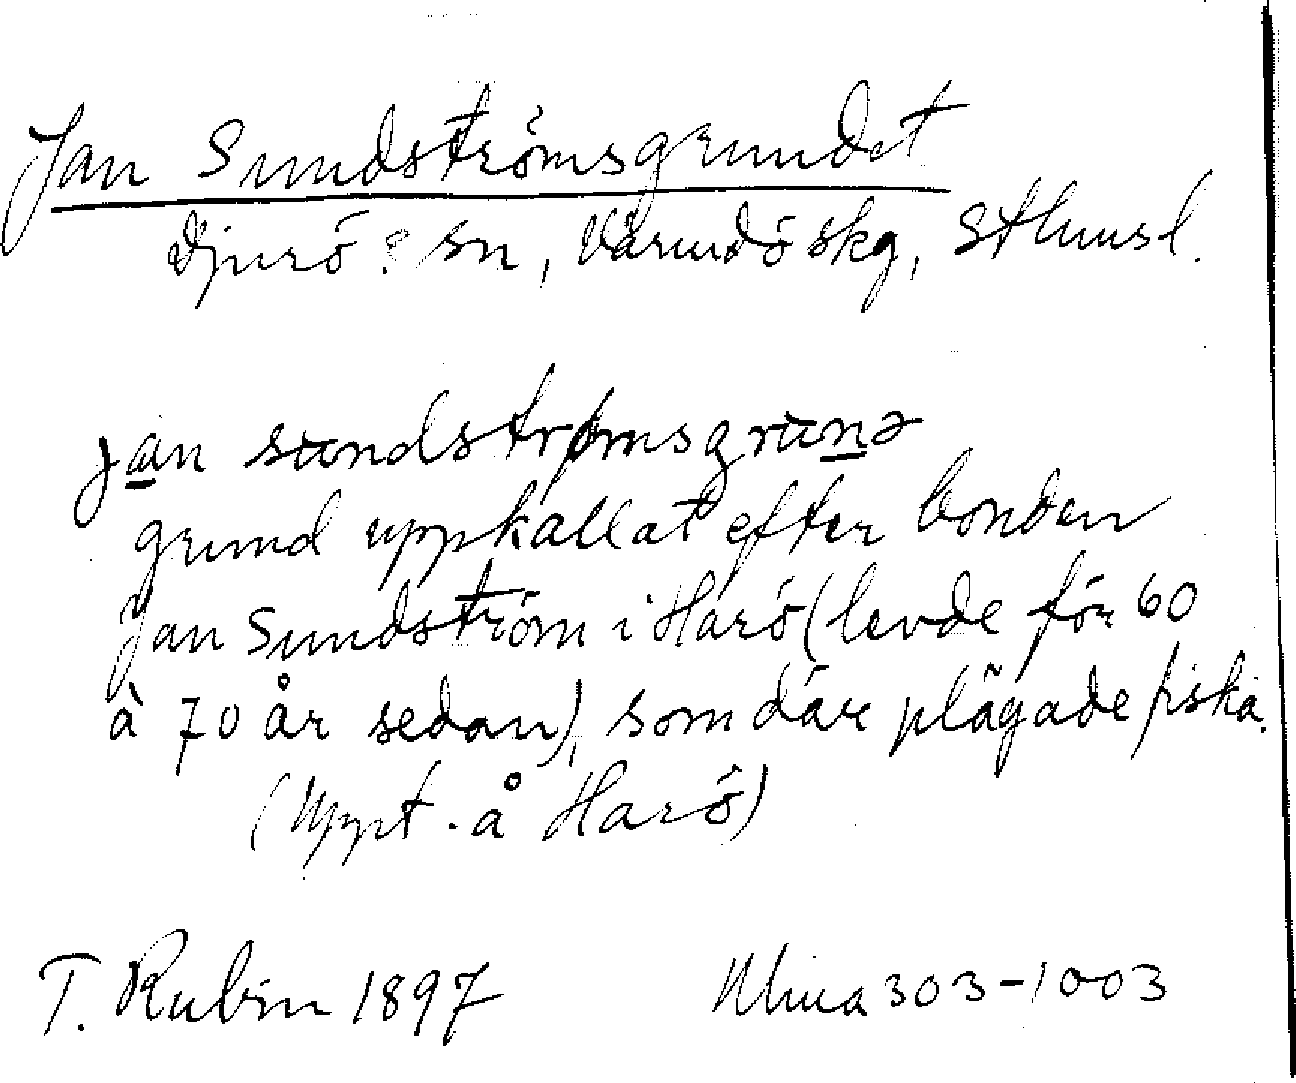 Jan Sundströmsgrundet
Djurö? sn, Värmdö skg, Sthmsl.
jan sundstrømsgrunə
grund uppkallat efter bonden
Jan Sundström i Harö (levde för 60
à 70 år sedan), som där plägade fiska.
(Uppt. å Harö)
T. Rubin 1897 303-1003